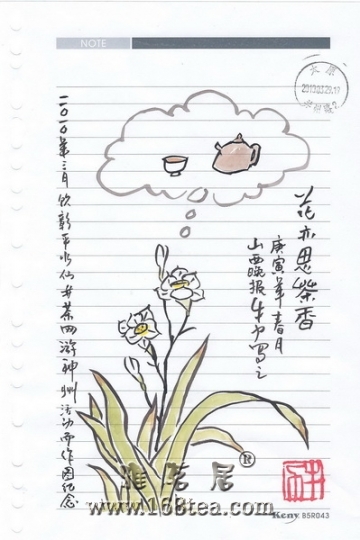 NOTE
太原
2013.03.29.17
花亦思茶香
庚寅年春月
山西晚报 写之
二〇一〇年三月饮 平水仙 茶四游神州活动而作图纪念
雅茗居®
www.168tea.com
Keny BSR043